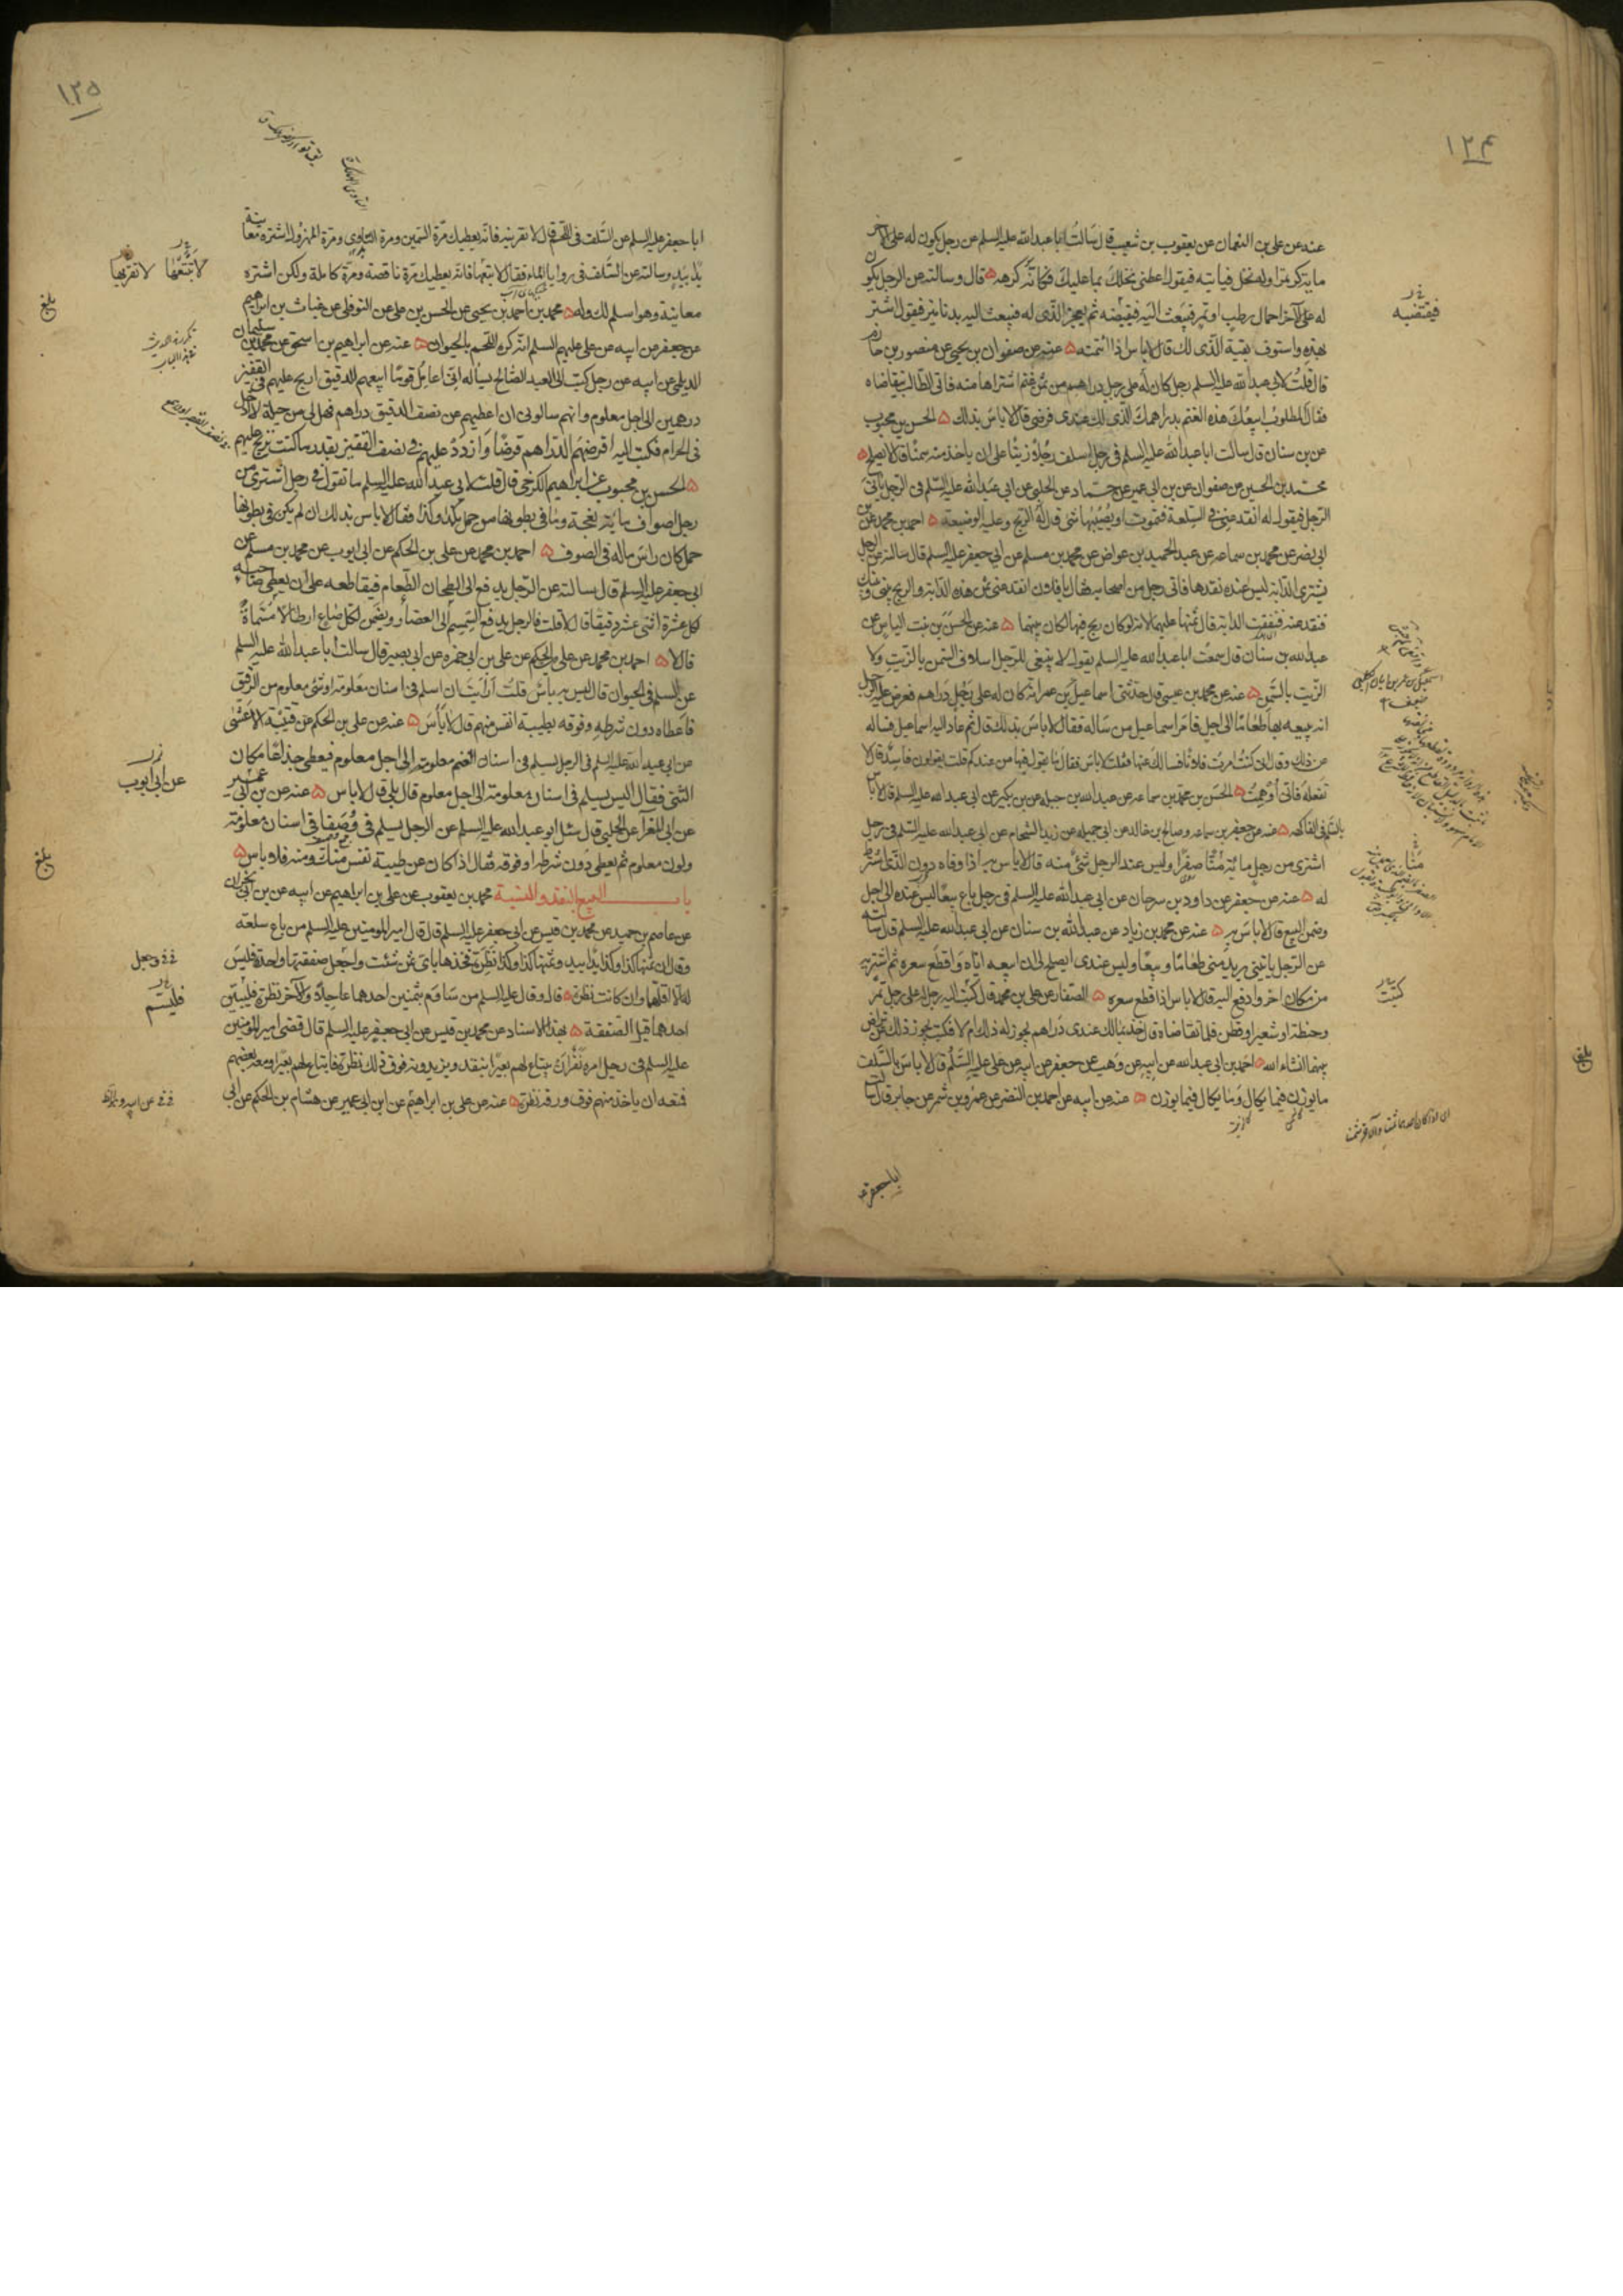 ١٢٤
عنه عن علي بن النعمان عن يعقوب بن شعيب قال سالت ابا عبدالله عليه السلم عن رجل يكون له على الآخر
ماية كر تمرا وله نخل فياتيه فيقول اعطنى نخلك بما عليك فكانه كرهه قال وسالته عن الرجل يكون
له على الآخر احمال رطب او تمر فيبعث اليه فيقبضه ثم يعجز الذى له فيبعث اليه بدنانير فيقول اشتر
بهذه واستوف بقية الذى لك قال لا باس اذا ائتمنه عنه عن صفوان بن يحيى عن منصور بن حازم
قال قلت لابى عبدالله عليه السلم رجل كان له على رجل دراهم من ثمن غنم اشتراها منه فاتى الطالب يتقاضاه
فقال المطلوب ابيعك هذه الغنم بدراهمك الذى لك عندى فرضى قال لا باس بذلك الحسن بن محبوب
عن بن سنان قال سالت ابا عبدالله عليه السلم فى رجل اسلف رجلا زيتا على ان ياخذ منه سمنا قال لا يصلح
محمد بن الحسين عن صفوان عن بن ابى عمير عن حماد عن الحلبى عن ابى عبدالله عليه السلم فى الرجل ياتى
الرجل فيقول له انقد عنى فى السلعة فتموت او يصيبها شئ قال له الربح وعليه الوضيعة احمد بن محمد عن بن
ابى نصر عن محمد بن سماعه عن عبد الحميد بن عواض عن محمد بن مسلم عن ابى جعفر عليه السلم قال سالته عن الرجل
يشترى الدابة ليس عنده نقدها فاتى رجل من اصحابه فقال يا فلان انقد عنى ثمن هذه الدابة والربح بينى وبينك
فنقد عنه فنفقت الدابة قال ثمنها عليهما لانه لو كان ربح فيها لكان بينهما عنه عن الحسن بن بنت الياس عن
عبدالله بن سنان قال سمعت ابا عبدالله عليه السلم يقول لا ينبغى للرجل اسلاف السمن بالزيت ولا
الزيت بالسمن عنه عن محمد بن عيسى قال حدثنى اسماعيل بن عمر انه كان له على رجل دراهم فعرض عليه الرجل
انه يبيعه بها طعاما الى اجل فامر اسماعيل من ساله فقال لا باس بذلك قال ثم عاد اليه اسماعيل فساله
عن ذلك وقال انى كنت امرت فلانا فسالك عنها فقلت لا باس فقال ما يقول فيها من عندكم قلت يقولون فاسد قال لا
تفعله فانى اوهمت الحسن بن محمد بن سماعه عن عبدالله بن جبله عن بن بكير عن ابى عبدالله عليه السلم قال لا باس
بالسلم فى الفاكهه عنه عن جعفر بن سماعه وصالح بن خالد عن ابى جميله عن زيد الشحام عن ابى عبدالله عليه السلم فى رجل
اشترى من رجل مائة منا صفرا وليس عند الرجل شئ منه قال لا باس به اذا وفاه دون الذى اشترط
له عنه عن جعفر عن داود بن سرحان عن ابى عبدالله عليه السلم فى رجل باع بيعا ليس عنده الى اجل
وضمن البيع قال لا باس به عنه عن محمد بن زياد عن عبدالله بن سنان عن ابى عبدالله عليه السلم قال سالته
عن الرجل ياتينى يريد منى طعاما وبيعا وليس عندى ايصلح لى ان ابيعه اياه واقطع سعره ثم اشتريه
من مكان اخر وادفع اليه قال لا باس اذا قطع سعره الصفار عن على بن محمد قال كتبت اليه رجل له على رجل تمر
وحنطة او شعير او قطن فلما تقاضاه قال خذ بما لك عندى دراهم يجوز له ذلك ام لا فكتب يجوز ذلك عن تراض
بينهما انشاء الله احمد بن ابى عبدالله عن ابيه عن وهب عن جعفر عن ابيه عن على عليه السلم قال لا باس بالسلف
ما يوزن فيما يكال وما يكال فيما يوزن عنه عن ابيه عن احمد بن النضر عن عمرو بن شمر عن جابر قال سالت
فيقتضيه
منا
كتبت
ابا جعفر
١٢٥
ابا جعفر عليه السلم عن السلف فى اللحم قال لا تقربنه فانه يعطيك مرة السمين ومرة التاوى ومرة المهزول اشتره معاينة
يدا بيد وسالته عن السلف فى روايا الماء فقال لا تبتعها فانه يعطيك مرة ناقصة ومرة كاملة ولكن اشتره
معاينة وهو اسلم لك وله محمد بن احمد بن يحيى عن الحسن بن على عن النوفلى عن غياث بن ابراهيم
عن جعفر عن ابيه عن على عليهم السلم انه كره اللحم بالحيوان عنه عن ابراهيم بن اسحق عن محمد بن سليمان
الديلمى عن ابيه عن رجل كتب الى العبد الصالح يساله انى اعامل قوما ابيعهم الدقيق اربح عليهم فى القفيز
درهمين الى اجل معلوم وانهم سالونى ان اعطيهم عن نصف الدقيق دراهم فهل لى من حيلة لا ادخل
فى الحرام فكتب اليه اقرضهم الدراهم قرضا وازدد عليهم فى نصف القفيز بقدر ما كنت تربح عليهم
الحسن بن محبوب عن ابراهيم الكرخى قال قلت لابى عبدالله عليه السلم ما تقول فى رجل اشترى من
رجل اصواف مائة نعجة وما فى بطونها من حمل بكذا وكذا فقال لا باس بذلك ان لم يكن فى بطونها
حمل كان راس ماله فى الصوف احمد بن محمد عن على بن الحكم عن ابى ايوب عن محمد بن مسلم عن
ابى جعفر عليه السلم قال سالته عن الرجل يدفع الى الطحان الطعام فيقاطعه على ان يعطى صاحبه
لكل عشرة اثنى عشر دقيقا قال لا قلت فالرجل يدفع السمسم الى العصار ويضمن لكل صاع ارطالا مسماة
قال لا احمد بن محمد عن على بن الحكم عن على بن ابى حمزه عن ابى بصير قال سالت ابا عبدالله عليه السلم
عن السلم فى الحيوان قال ليس به باس قلت ارايت ان اسلم فى اسنان معلومة او شئ معلوم من الرقيق
فاعطاه دون شرطه وفوقه بطيبة انفس منهم قال لا باس عنه عن على بن الحكم عن قتيبة الاعشى
عن ابى عبدالله عليه السلم فى الرجل يسلم فى اسنان الغنم معلومة الى اجل معلوم فيعطى جذاعا مكان
الثنى فقال اليس يسلم فى اسنان معلومة الى اجل معلوم قال بلى قال لا باس عنه عن بن ابى عمير
عن ابى المغرا عن الحلبى قال سئل ابو عبدالله عليه السلم عن الرجل يسلم فى وصفا فى اسنان معلومة
ولون معلوم ثم يعطى دون شرطه او فوقه فقال اذا كان عن طيبة نفس منك ومنه فلا باس
باب البيع بالنقد والنسية محمد بن يعقوب عن على بن ابراهيم عن ابيه عن بن ابى نجران
عن عاصم بن حميد عن محمد بن قيس عن ابى جعفر عليه السلم قال قال امير المومنين عليه السلم من باع سلعة
وقال ان ثمنها كذا وكذا يدا بيد وثمنها كذا وكذا نظرة فخذها باى ثمن شئت واجعل صفقتها واحدة فليس
له الا اقلهما وان كانت نظرة قال وقال عليه السلم من ساوم بثمنين احدهما عاجلا والآخر نظرة فليسم
احدهما قبل الصفقة بهذا الاسناد عن محمد بن قيس عن ابى جعفر عليه السلم قال قضى امير المومنين
عليه السلم فى رجل امره نفر ان يبتاع لهم بعيرا بنقد ويزيدونه فوق ذلك نظرة فابتاع لهم بعيرا ومعه بعضهم
فمنعه ان ياخذ منهم فوق ورقه نظرة عنه عن على بن ابراهيم عن ابن ابى عمير عن هشام بن الحكم عن ابى
لا تبتعها لا تقربها
بلغ
عن ابى ايوب
بلغ
وجعل
فليسم
بلغ